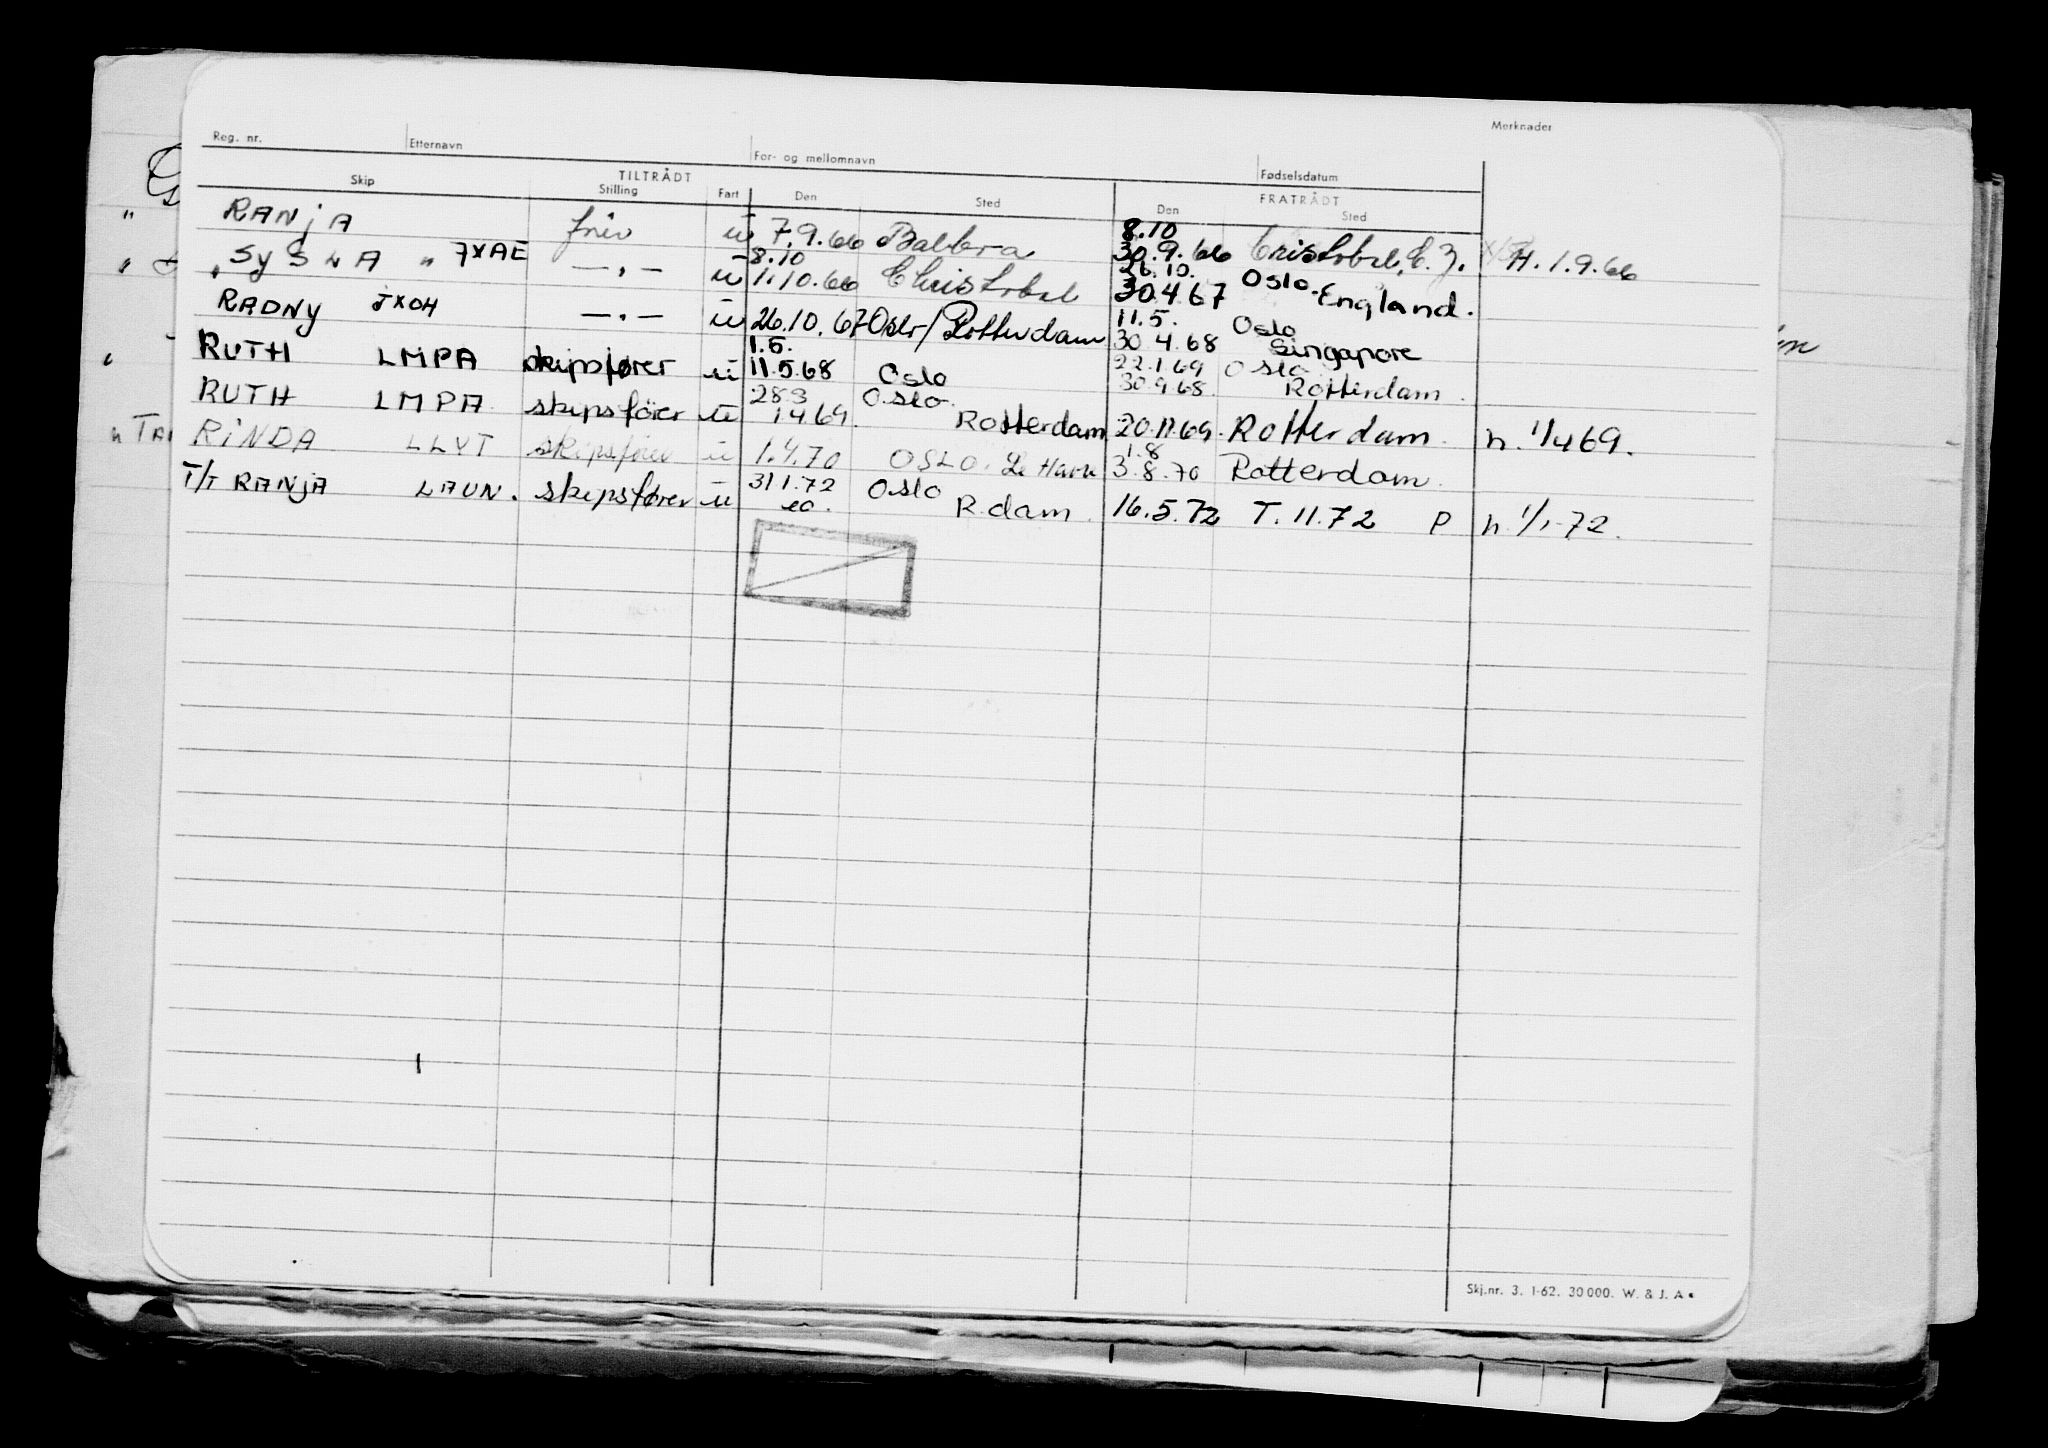 Reg. nr. Etternavn For- og mellomnavn Fødselsdatum Merknader
TILTRÅDT FRATRÅDT
Skip Stilling Fart Den Sted Den Sted
RANJA fører u 7.9.66 Balboa 8.10 30.9.66 Cristobal, C.Z. H. 1.9.66
" SYSLA " JXAE —"— u 8.10 1.10.66 Christobal 26.10. 30.4.67 Oslo. England.
RADNY JXOH —"— u 26.10.67 Oslo/Rotterdam 11.5. 30.4.68 Oslo Singapore
RUTH LMPA skipsfører u 1.5. 11.5.68 Oslo 22.1.69 30.9.68. Oslo Rotterdam.
RUTH LMPA skipsfører u 28.3 1.4.69. Oslo. Rotterdam 20.11.69. Rotterdam. h. 1/4 69.
" TAN RINDA LLVT skipsfører u 1.4.70 OSLO. Le Havre 1.8 3.8.70 Rotterdam.
T/T RANJA LAUN. skipsfører u 31.1.72 Oslo R.dam. 16.5.72 T. 11.72 P h. 1/1-72.
Skj.nr. 3. 1-62. 30 000. W. & J. A.